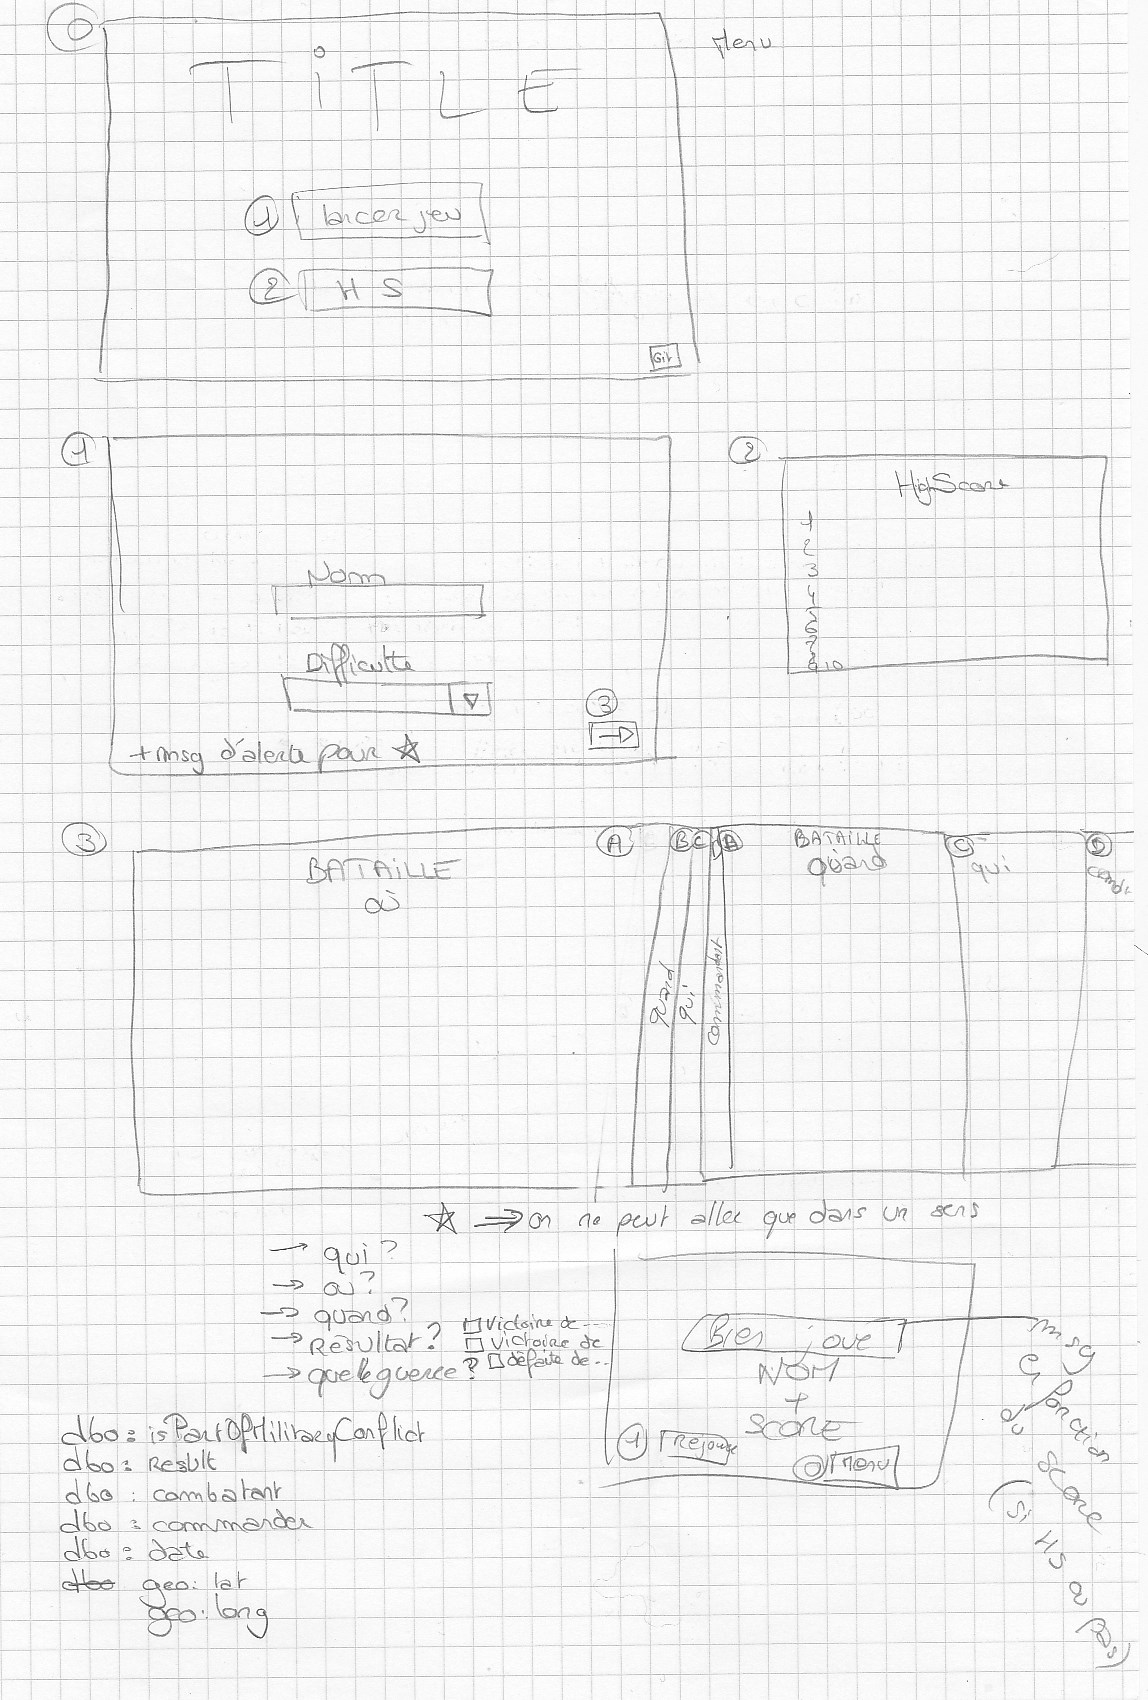 0
Menu
TiTLE
1 lancer jeu
2 HS
Git
1
2
HighScore
1
2
3
4
5
6
7
8
9 10
Nom
Difficulté
3
+ msg d'alerte pour ☆
3
A
B
C
B
C
D
BATAiLLE
où
quand
qui
commandant
BATAiLLE
quand
qui
☆ ⇒ on ne peut aller que dans un sens
→ qui ?
→ où ?
→ quand ?
→ Résultat ? □ Victoire de ...
□ Victoire de
→ quelle guerre ? □ défaite de ...
Bien joué
NOM
+
SCORE
1 Rejouer
0 Menu
msg
en fonction
du score
(si HS ou pas)
dbo : isPartOfMilitaryConflict
dbo : Result
dbo : combatant
dbo : commander
dbo : date
dbo geo : lat
geo : long